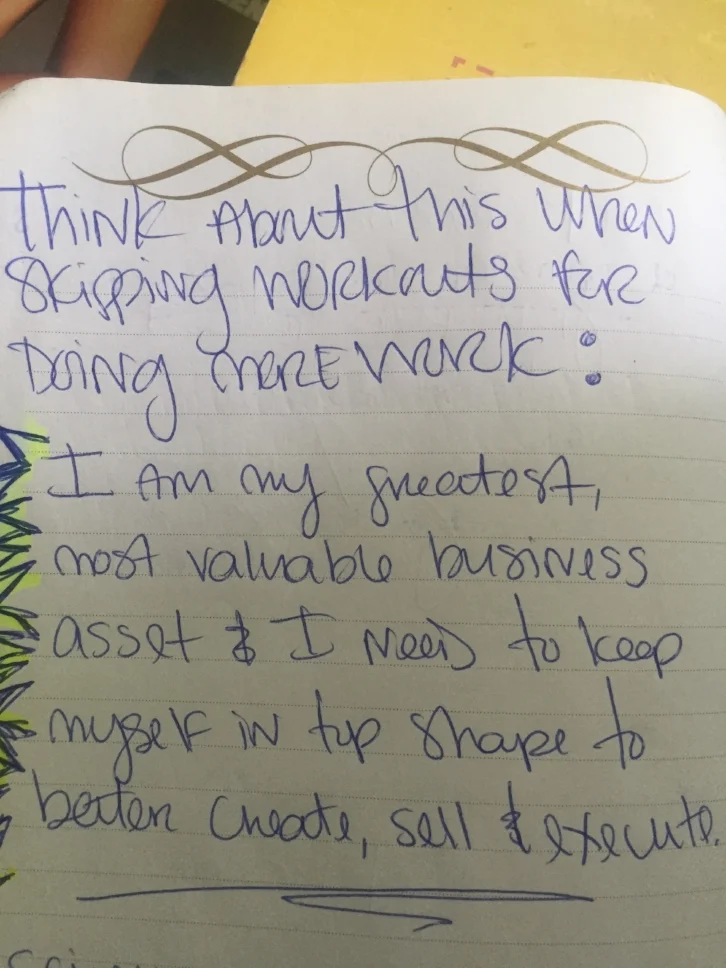 Think About this when
skipping workouts for
Doing more work:
I Am my greatest,
most valuable business
asset & I need to keep
myself in top shape to
better create, sell & execute.